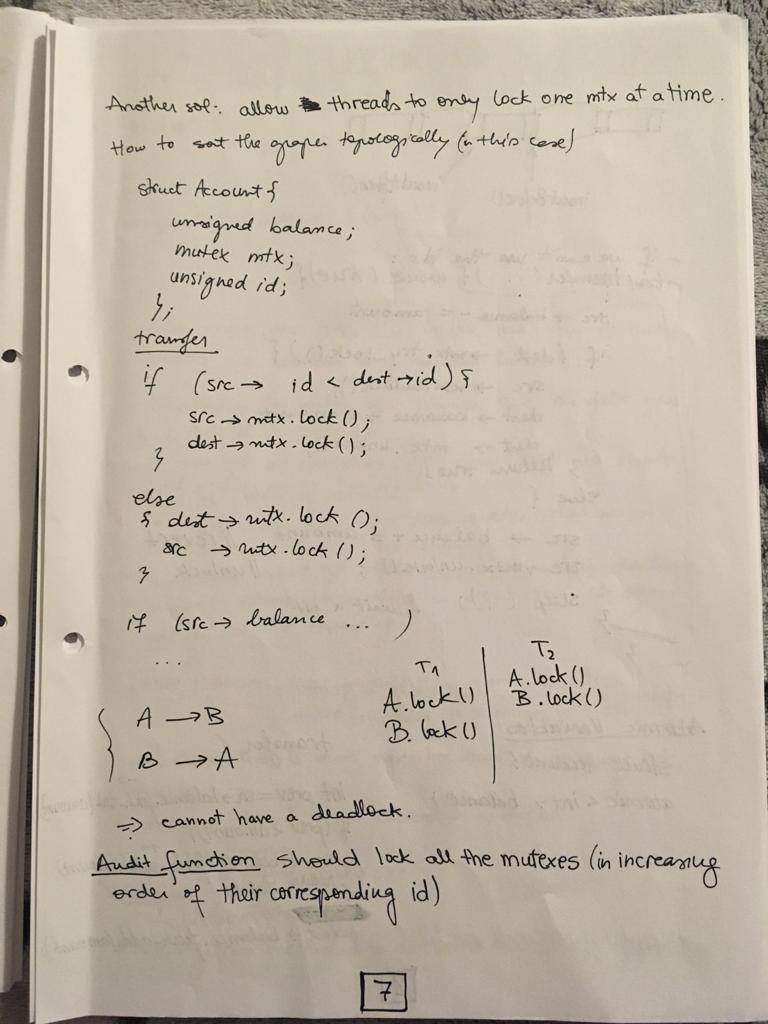 Another sol.: allow threads to only lock one mtx at a time.
How to sort the graph topologically (in this case)
struct Account {
unsigned balance;
mutex mtx;
unsigned id;
};
transfer
if (src → id < dest → id) {
src → mtx.lock();
dest → mtx.lock();
}
else
{ dest → mtx.lock ();
src → mtx.lock();
}
if (src → balance ... )
...
T1
A.lock()
B.lock()
T2
A.lock()
B.lock()
{ A → B
B → A
⇒ cannot have a deadlock.
Audit function should lock all the mutexes (in increasing
order of their corresponding id)
7